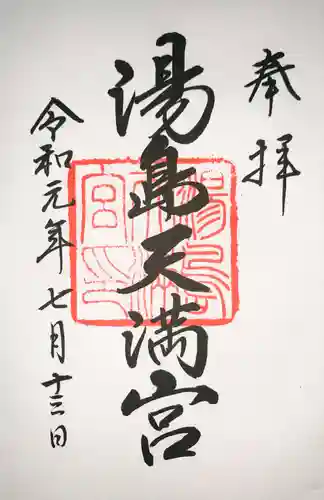 奉拝
湯島天満宮
令和元年七月十三日